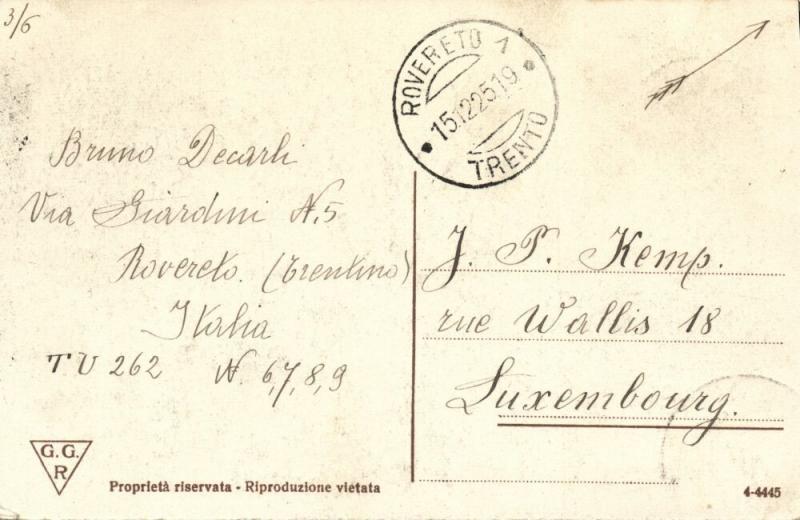 3/6
ROVERETO 1
15.12 25.19
TRENTO
Bruno Decarli
Via Giardini N.5
Rovereto. (Trentino)
Italia
TU 262 N. 6,7,8,9
J. P. Kemp.
rue Wallis 18
Luxembourg.
G. G.
R
Proprietà riservata - Riproduzione vietata
4-4445